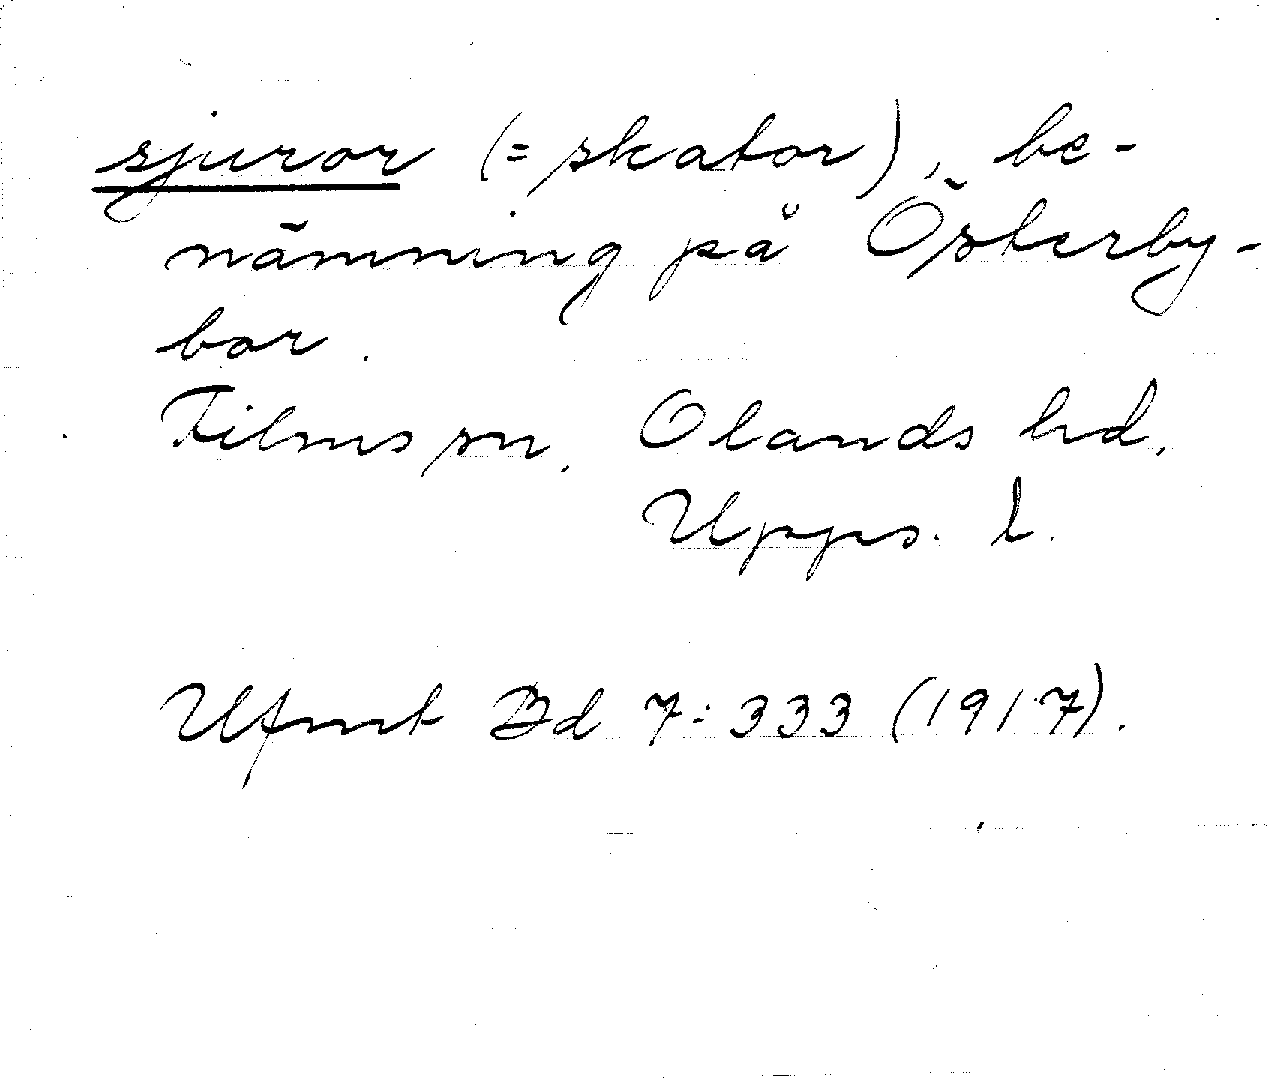 sjuror (= skator), be-
nämning på Österby-
bor.
Films sn, Olands hd,
Upps. l.
Ufmt Bd 7: 333 (1917).